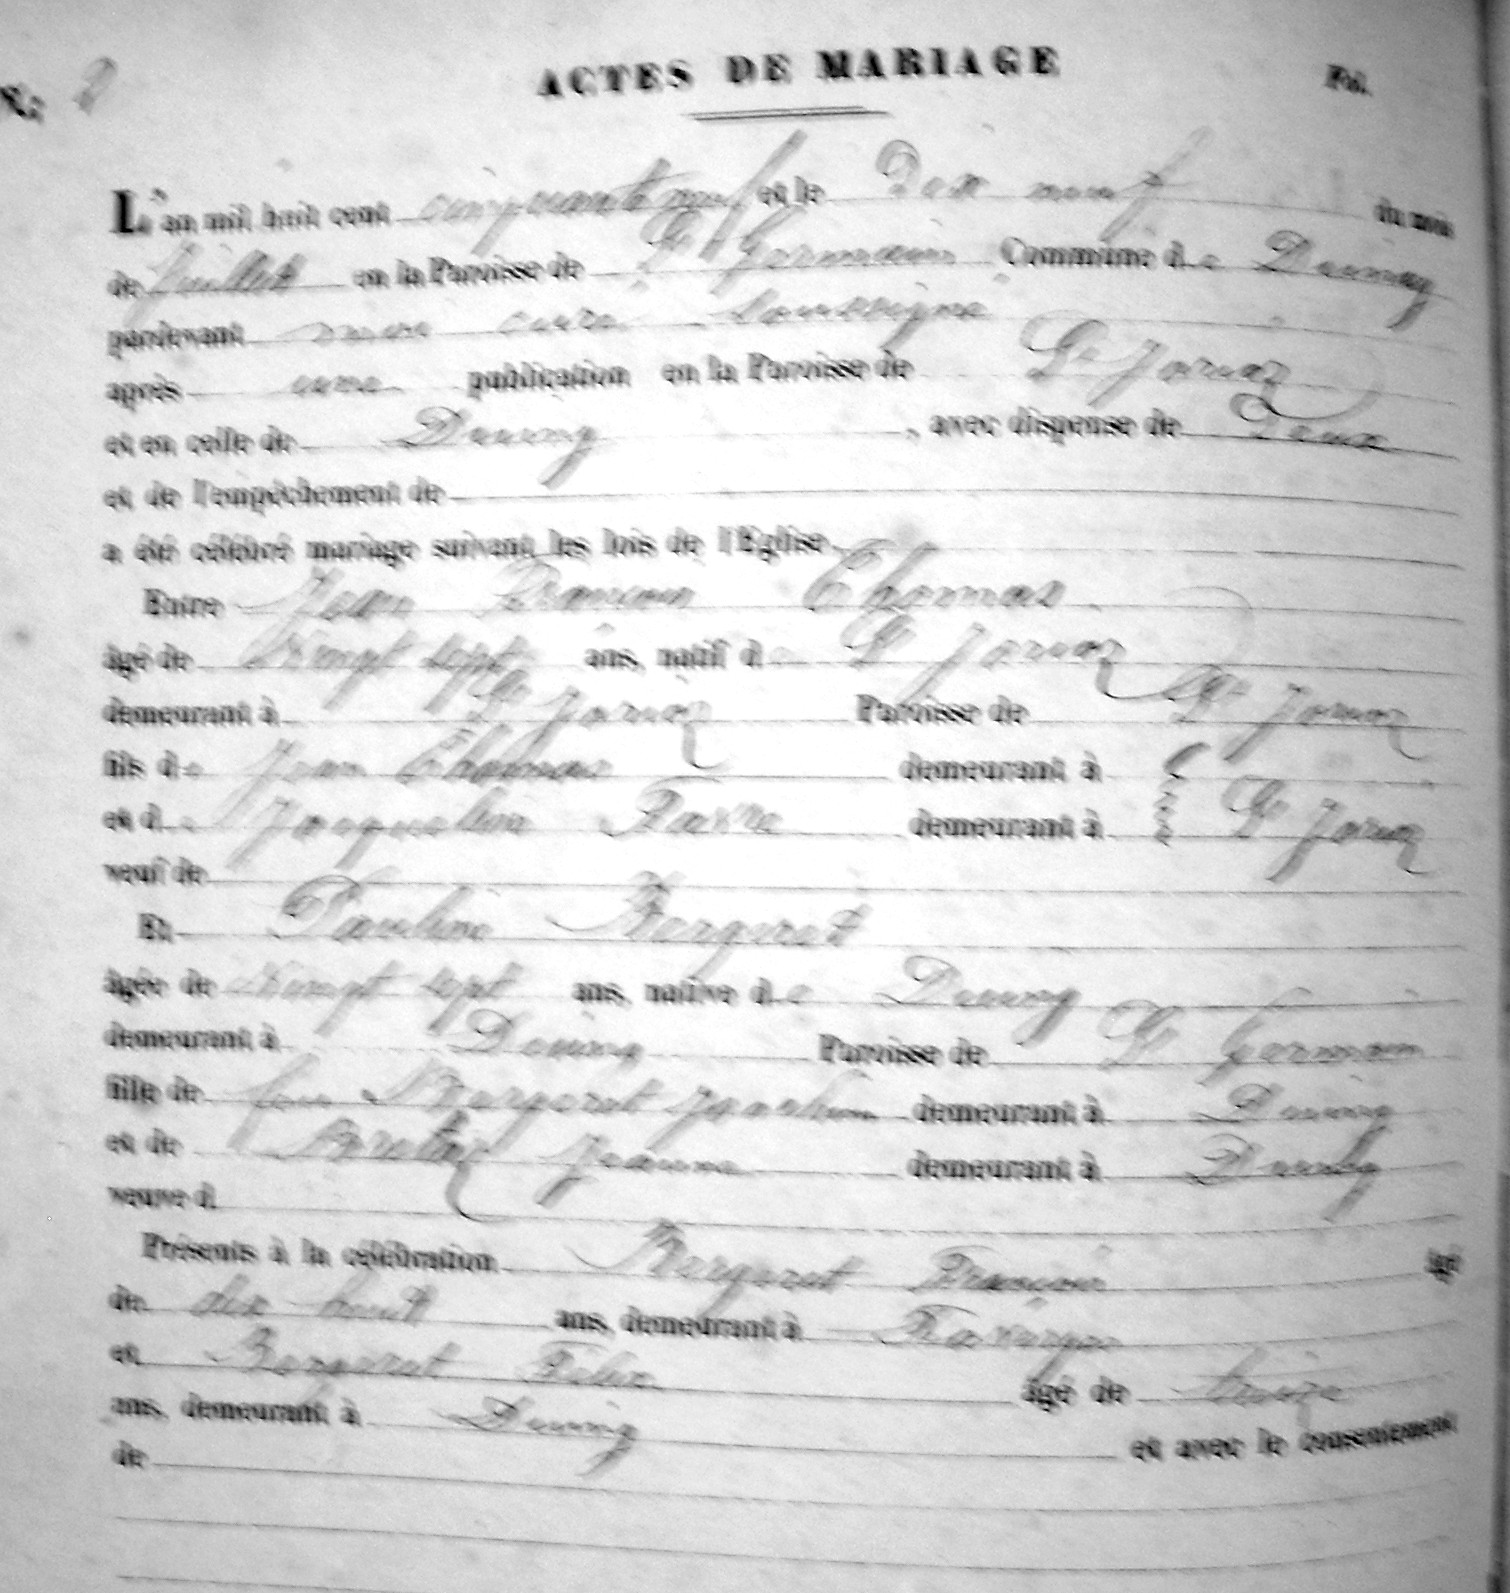 N.° 2 ACTES DE MARIAGE Fol.
L'an mil huit cent cinquante neuf et le Dix neuf du mois
de Juillet en la Paroisse de St Germain Commune de Duing
pardevant nous curé soussigné
après une publication en la Paroisse de St Jorioz
et en celle de Duing, avec dispense de Deux
et de l'empêchement de
a été célébré mariage suivant les lois de l'Eglise.
Entre Jean François Thomas
âgé de Vingt sept ans, natif de St Jorioz
demeurant à St Jorioz Paroisse de St Jorioz
fils de Jean Thomas demeurant à
et de Jacqueline Favre demeurant à St Jorioz
veuf de
Et Pauline Bergeret
âgée de Vingt sept ans, native de Duing
demeurant à Duing Paroisse de St Germain
fille de feu Bergeret Joachim demeurant à Duing
et de Jeanne demeurant à Duing
veuve d
Présents à la célébration Bergeret François âgé
de dix huit ans, demeurant à Faverges
et Bergeret Félix âgé de treize
ans, demeurant à Duing et avec le consentement
de